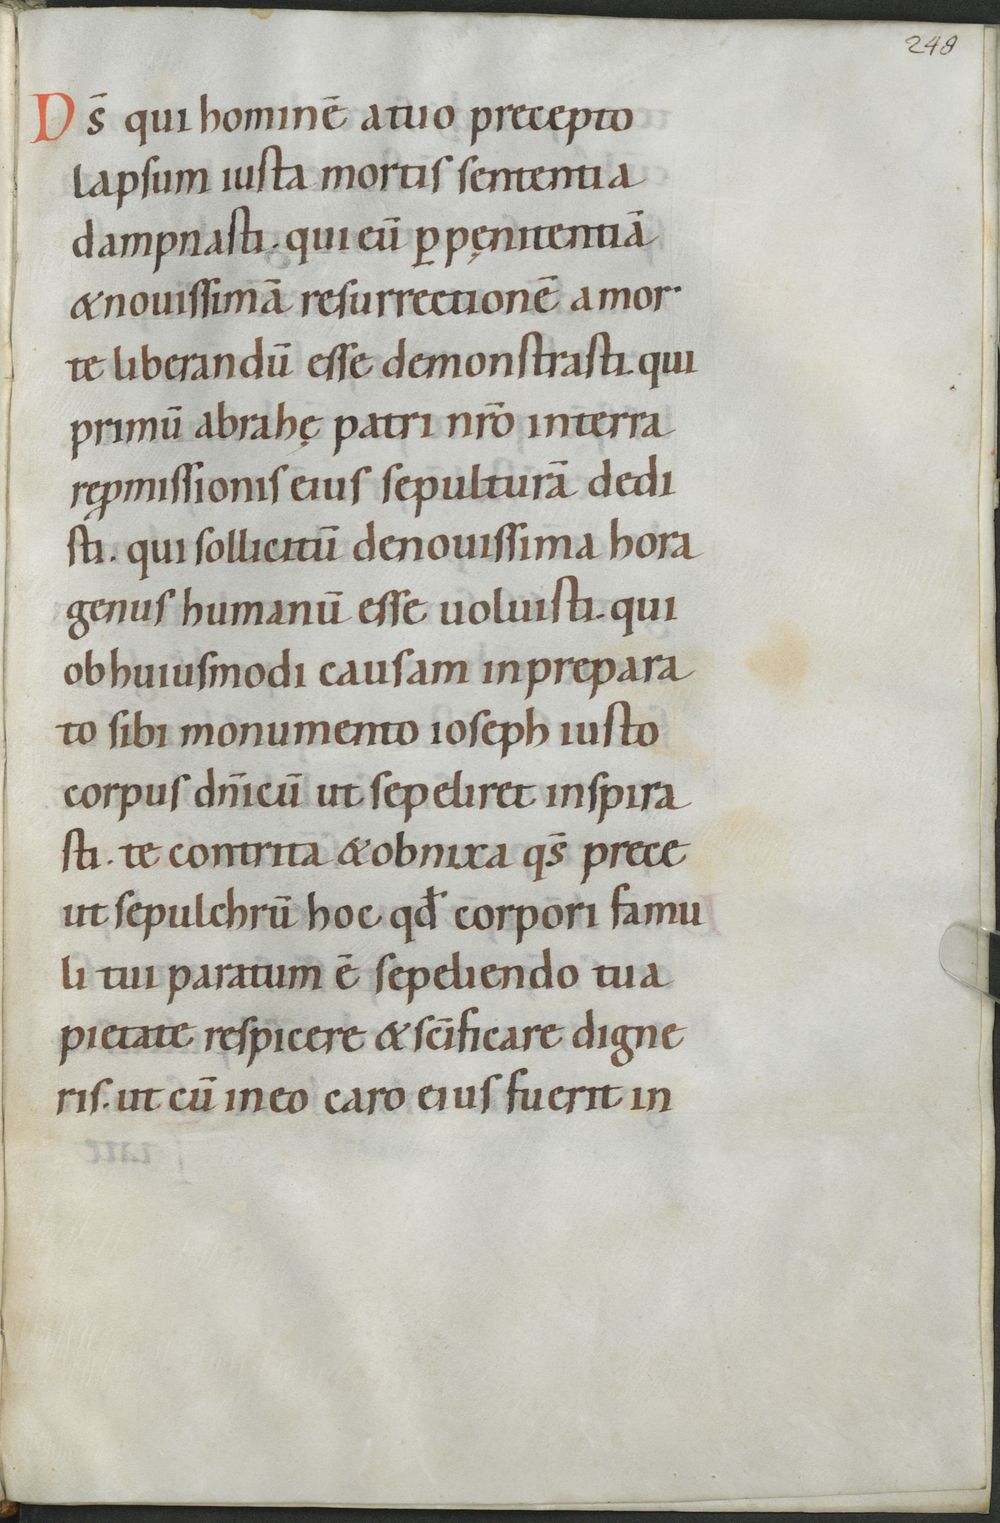 248
Ds̄ qui hominē a tuo precepto
lapsum iusta mortis sententia
dampnasti. qui eū ꝑ pęnitentiā
& nouissimā resurrectionē a mor
te liberandū esse demonstrasti. qui
primū abrahę patri nr̄o in terra
reꝓmissionis eius sepulturā dedi
sti. qui sollicitū de nouissima hora
genus humanū esse uoluisti. qui
ob huiusmodi causam in prepara
to sibi monumento ioseph iusto
corpus dn̄icū ut sepeliret inspira
sti. te contrita & obnixa qs̄ prece
ut sepulchrū hoc qđ corpori famu
li tui paratum ē sepeliendo tua
pietate respicere & sc̄ificare digne
ris. ut cū in eo caro eius fuerit in